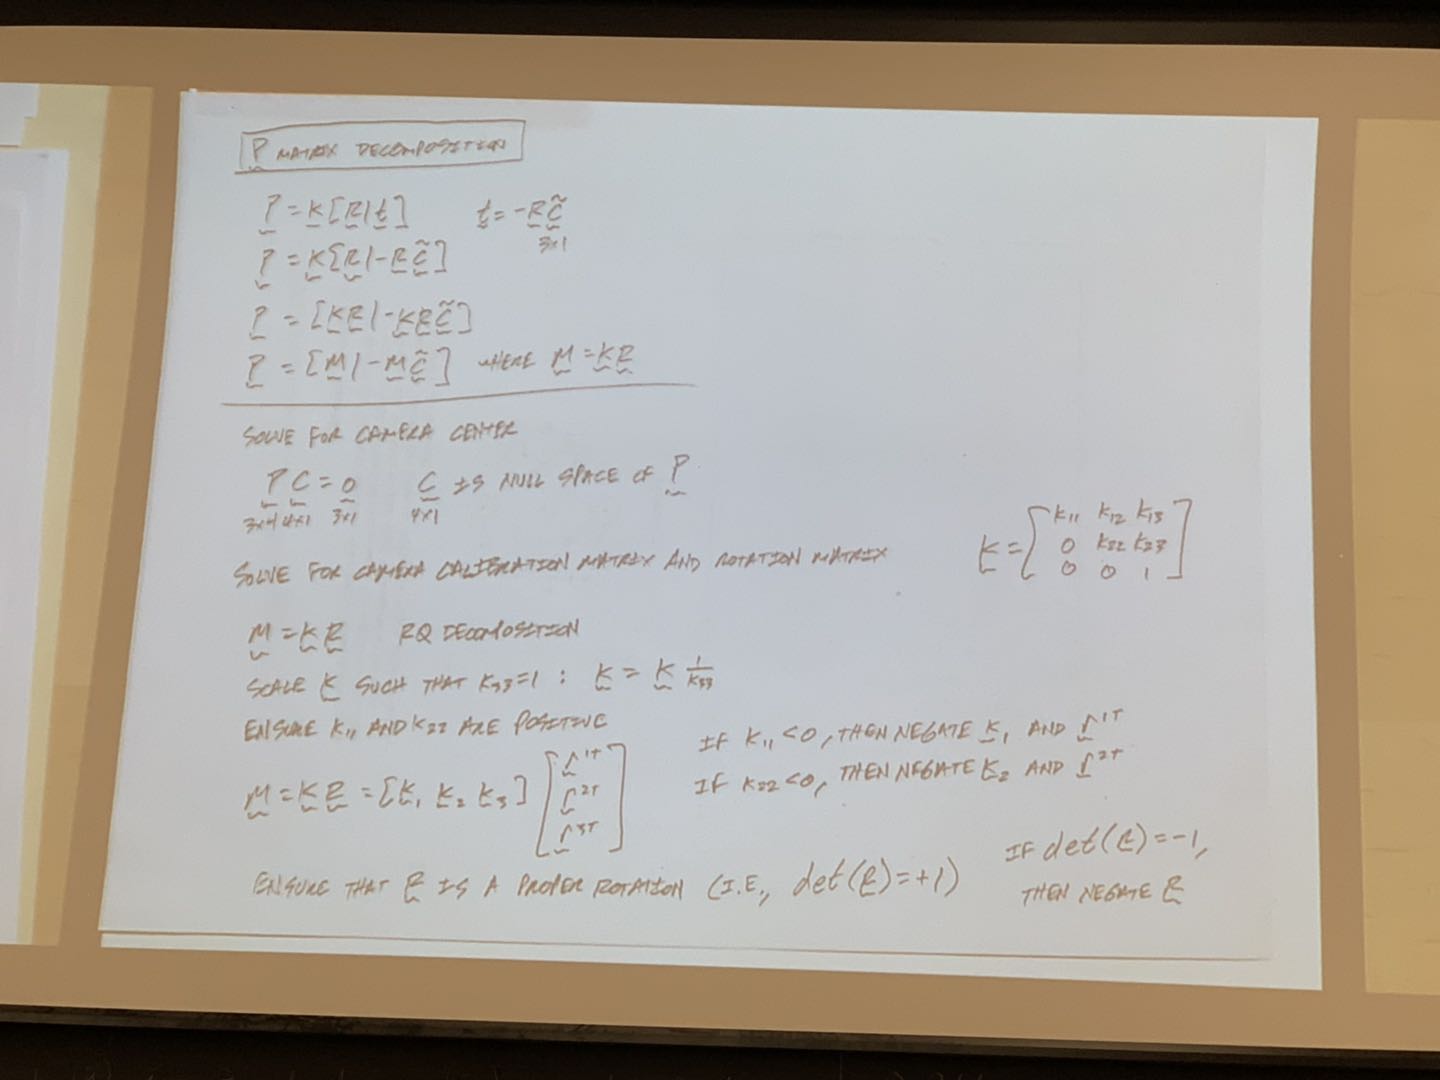 P MATRIX DECOMPOSITION
P = K [R | t]    t = -R C̃
3×1
P = K [R | -R C̃]
P = [KR | -KR C̃]
P = [M | -M C̃] WHERE M = KR
SOLVE FOR CAMERA CENTER
P C = 0    C IS NULL SPACE OF P
3×4 4×1 3×1 4×1
SOLVE FOR CAMERA CALIBRATION MATRIX AND ROTATION MATRIX
K = [ k11 k12 k13
0 k22 k23
0 0 1 ]
M = KR    RQ DECOMPOSITION
SCALE K SUCH THAT K33=1 : K = K 1/K33
ENSURE K11 AND K22 ARE POSITIVE
IF K11 < 0, THEN NEGATE K1 AND r1T
IF K22 < 0, THEN NEGATE K2 AND r2T
M = KR = [K1 K2 K3] [ r1T
r2T
r3T ]
ENSURE THAT R IS A PROPER ROTATION (I.E., det(R)=+1)
IF det(R)=-1,
THEN NEGATE R